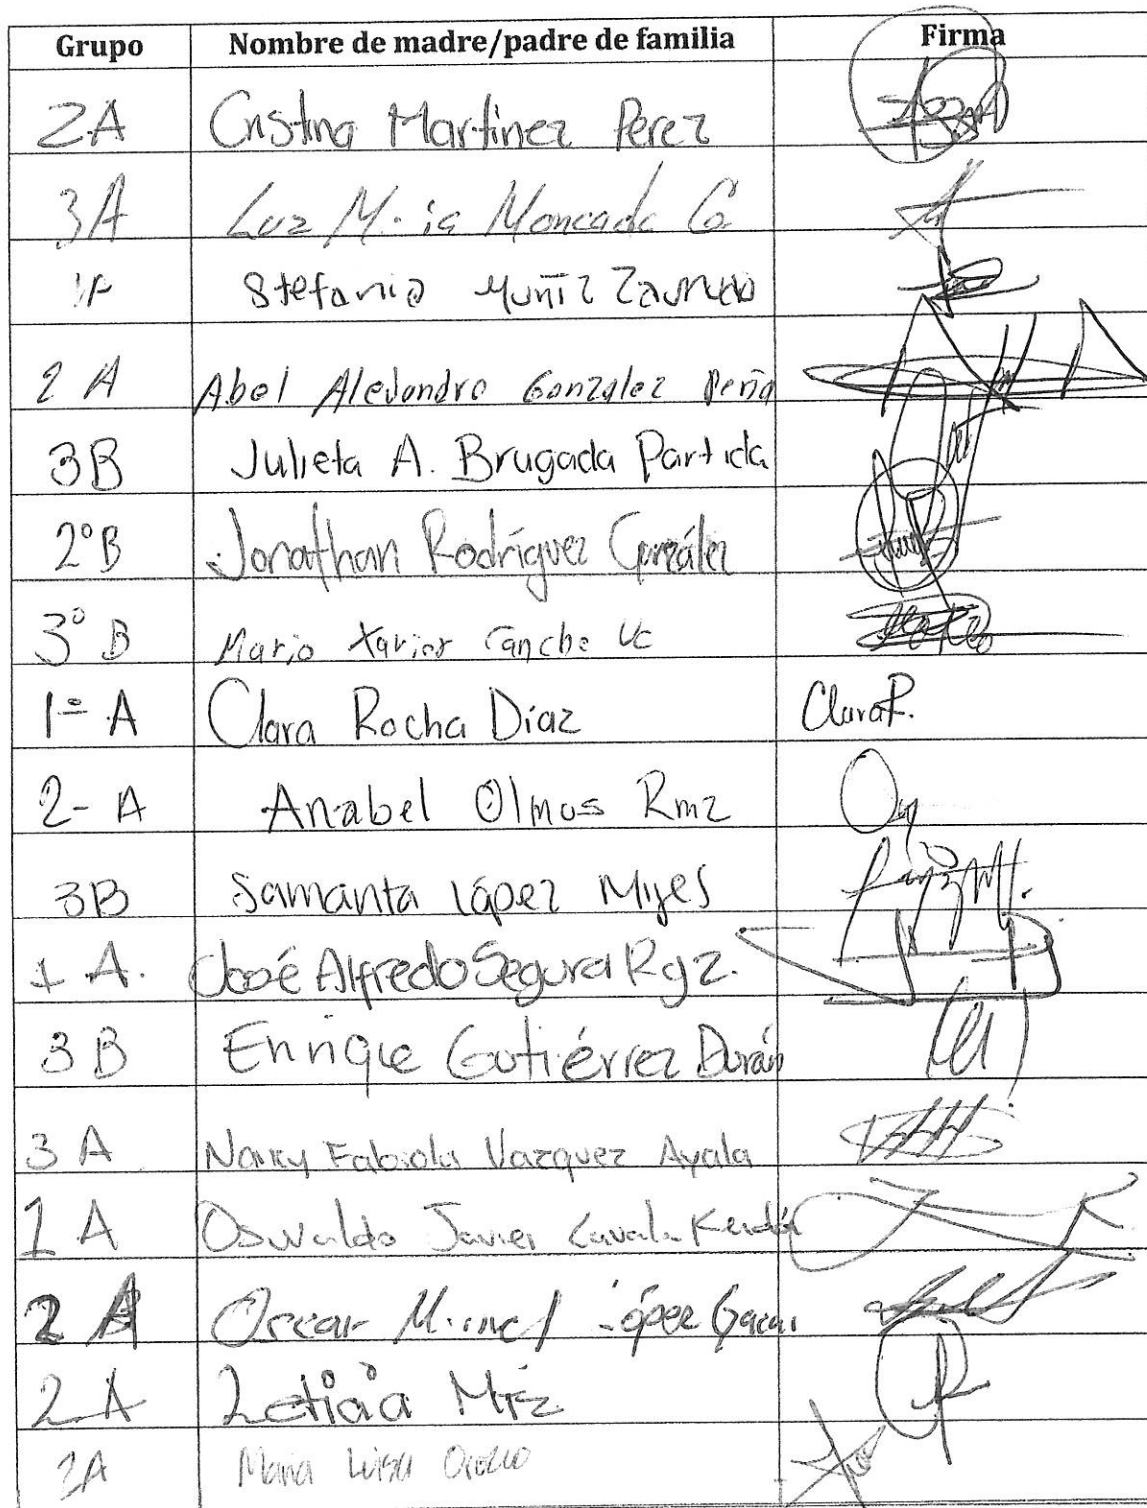 Grupo Nombre de madre/padre de familia Firma
2A Cristina Martinez Perez
3A Luz Moncada
1A Stefania Muñiz
2 A Abel Alejandro Gonzalez Peña
3B Julieta A. Brugada Partida
2°B Jonathan Rodríguez González
3° B Mario Xavier Canche Uc
1= A Clara Rocha Díaz Clara R.
2- A Anabel Olmos Rmz
3B Samanta López
1 A. José Alfredo Segura Rgz.
3B Enrique Gutiérrez Durán
3 A Fabiola Vazquez Ayala
1 A Oswaldo Javier
2 A Oscar López
2 A Leticia Mtz
2A Maria Luisa Orozco